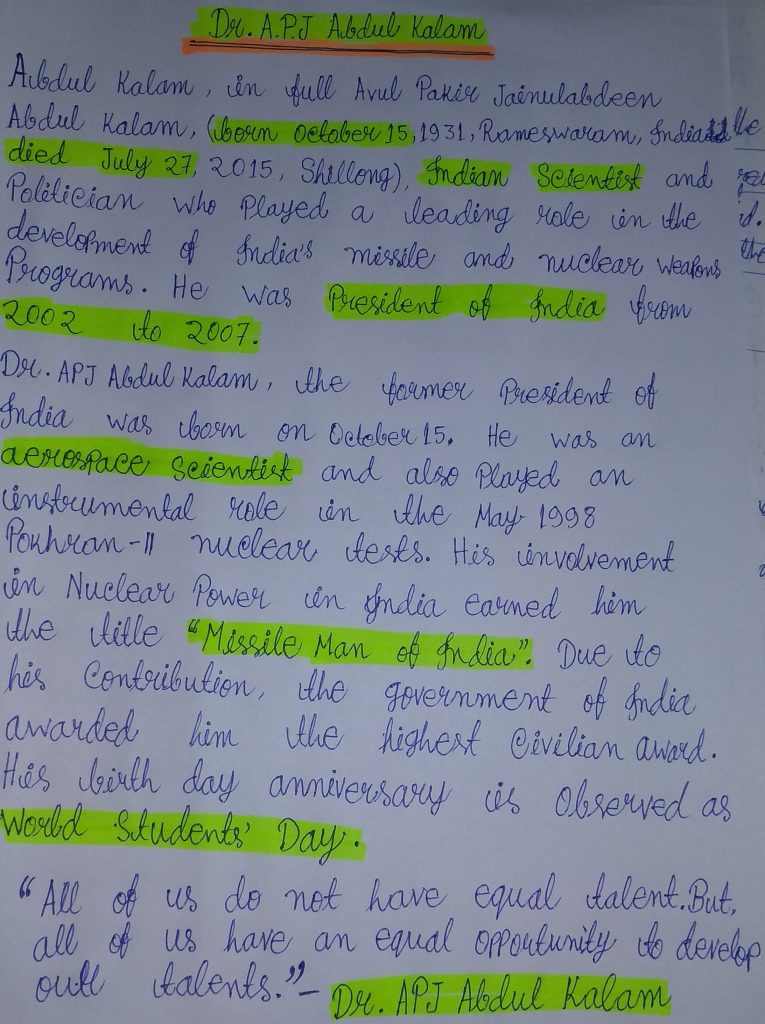 Dr. A.P.J Abdul Kalam
Abdul Kalam, in full Avul Pakir Jainulabdeen
Abdul Kalam, (born October 15, 1931, Rameswaram, India
died July 27, 2015, Shillong), Indian Scientist and
Politician who Played a leading role in the
development of India's missile and nuclear weapons
Programs. He was President of India from
2002 to 2007.
Dr. APJ Abdul Kalam, the former President of
India was born on October 15. He was an
aerospace Scientist and also Played an
instrumental role in the May 1998
Pokhran-II nuclear tests. His involvement
in Nuclear Power in India earned him
the title "Missile Man of India". Due to
his Contribution, the government of India
awarded him the highest Civilian award.
His birth day anniversary is Observed as
World Students' Day.
"All of us do not have equal talent. But,
all of us have an equal opportunity to develop
our talents." - Dr. APJ Abdul Kalam